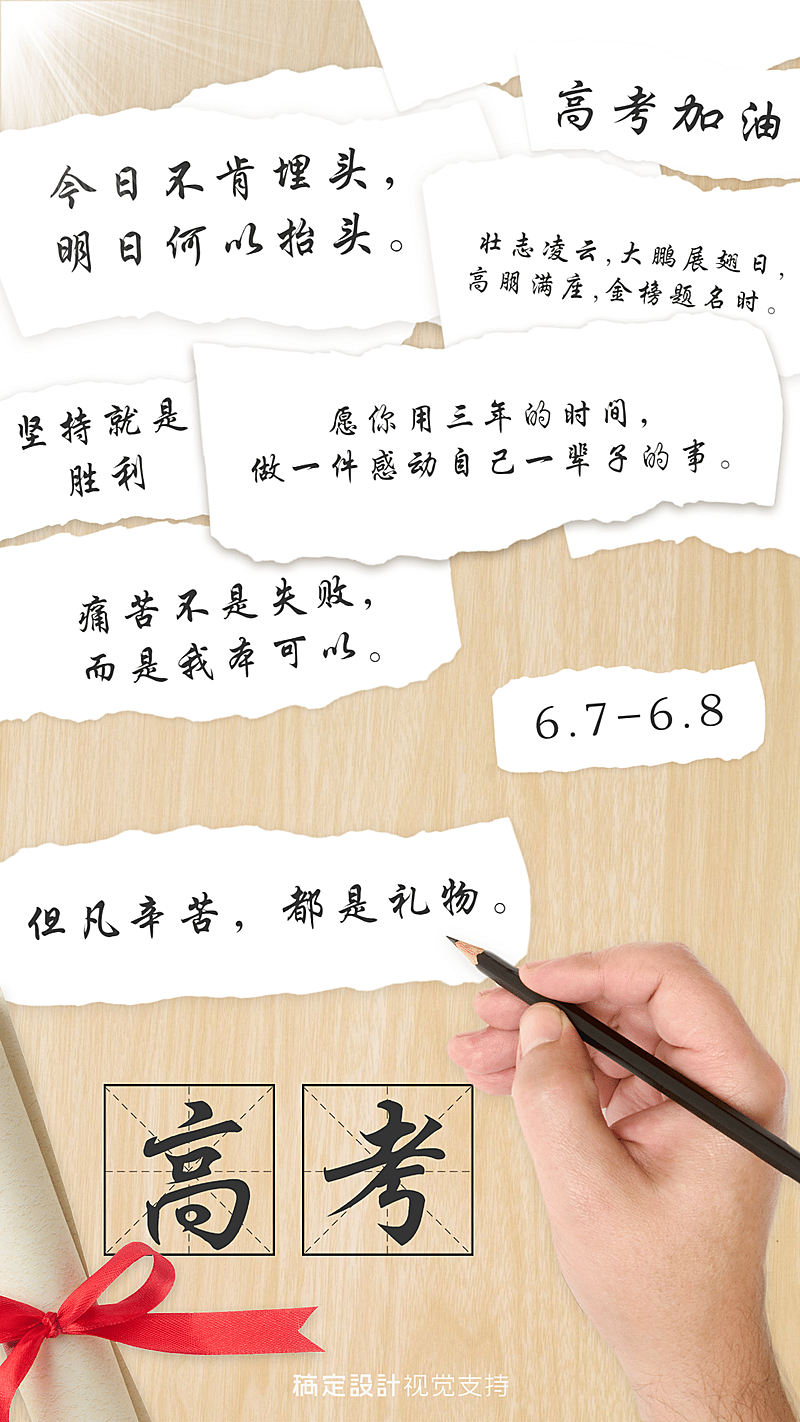 高考加油
今日不肯埋头，
明日何以抬头。
壮志凌云,大鹏展翅日,
高朋满座,金榜题名时。
坚持就是
胜利
愿你用三年的时间，
做一件感动自己一辈子的事。
痛苦不是失败，
而是我本可以。
6.7-6.8
但凡辛苦，都是礼物。
高考
稿定設計视觉支持